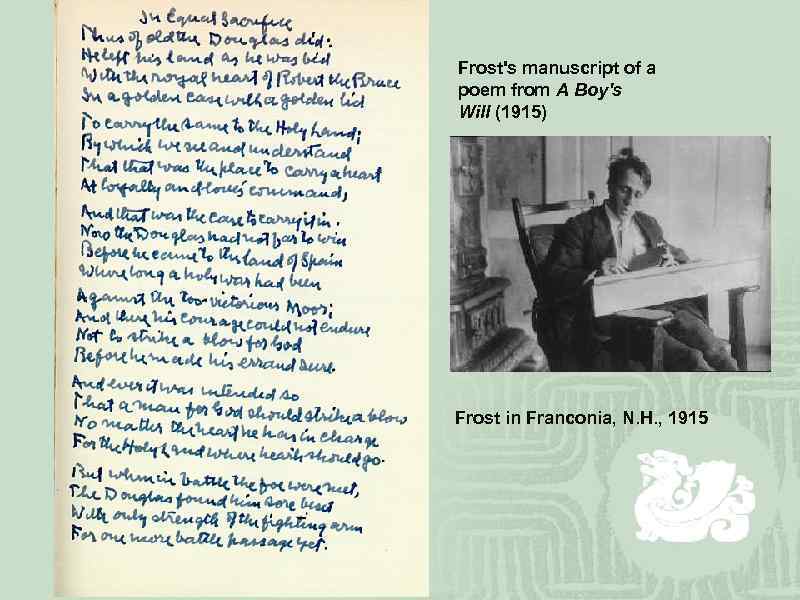 In Equal Sacrifice
Thus of old the Douglas did:
He left his land as he was bid
With the royal heart of Robert the Bruce
In a golden case with a golden lid
To carry the same to the Holy Land;
By which we see and understand
That that was the place to carry a heart
At loyalty and love's command,
And that was the case to carry it in.
Now the Douglas had not far to win
Before he came to the land of Spain
Where long a holy war had been
Against the too victorious Moor;
And there his courage could not endure
Not to strike a blow for God
Before he made his errand sure.
And ever it was intended so
That a man for God should strike a blow
No matter the heart he has in charge
For the Holy Land where hearts should go.
But when in battle the foe were met,
The Douglas found him sore beset
With only strength of the fighting arm
For one more battle passage yet.
Frost's manuscript of a
poem from A Boy's
Will (1915)
Frost in Franconia, N.H., 1915